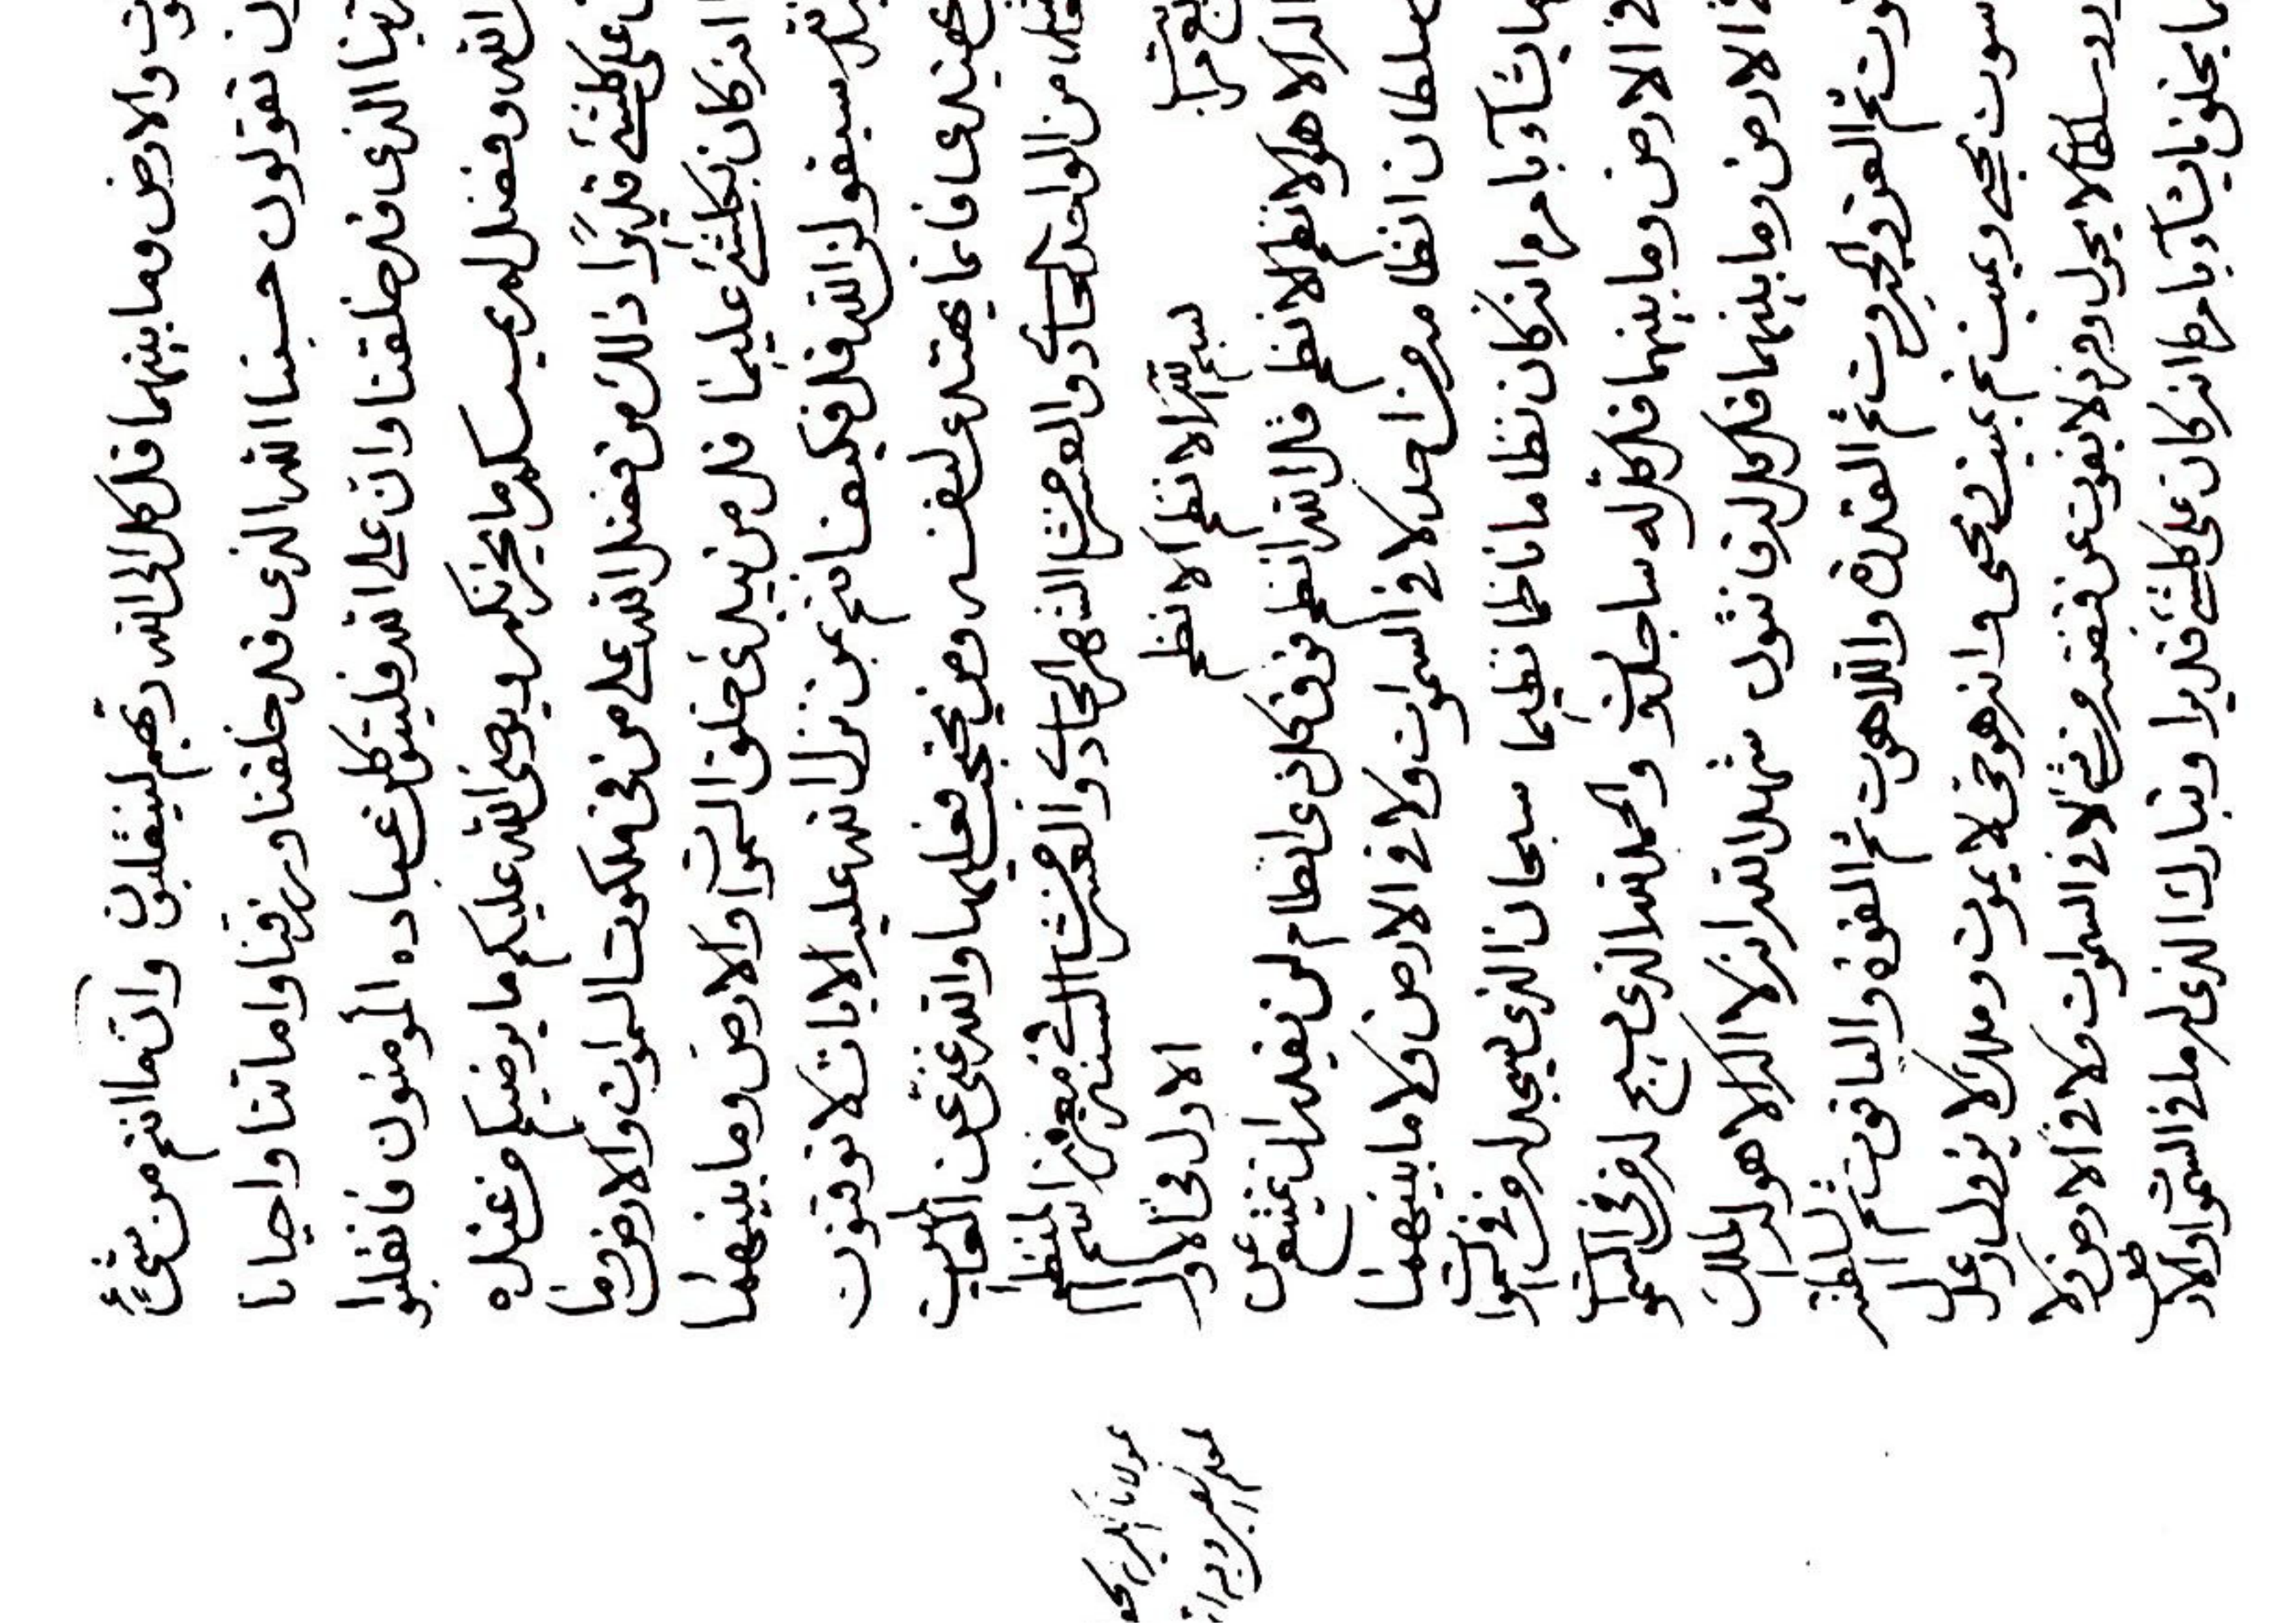 والارض وما بينهما قل كل الى الله ربهم لينقلبون وان ما انتم من شئ
تقولون حسبنا الله الذى قد خلقنا ورزقنا واماتنا واحيانا
الذى قد خلقنا وان على الله فليتوكلن عباده المؤمنون فانقلبوا
الله وفضل لم يمسسكم ما يحزنكم ويرضى الله عليكم ما يرضيكم من عنده
على كلشئ قديرا ذلك من فضل الله على من فى ملكوت السموات والارض وما
انه كان بكلشئ عليما قل من يبدئ خلق السموات والارض وما بينهما
سيقولن الله قل فكيف انتم بمن نزل الله عليه الايات لا توقنون
يهتدى فانما يهتدى لنفسه ومن يحتجب فعليها والله غنى عن العالمين
من الواحد الحادى والعشر من الشهر الحادى والعشر من السنة فى معرفة اسم المنتظم
بسم الله الانظم الانظم الاول فى الاول
اله الا هو الانظم الانظم قل الله انظم فوق كل ذى انظام لن يقدر ان يمتنع عن
سلطان انظامه من احد لا فى السموات ولا فى الارض ولا ما بينهما
يشاء بامره انه كان نظاما ناظما نظيما سبحان الذى يسجد له من فى السموات
فى الارض وما بينهما قل كل له ساجدون والحمد لله الذى يسبح له من فى السموات
فى الارض وما بينهما قل كل له قانتون شهد الله انه لا اله الا هو له الملك
ثم العز والجبروت ثم القدرة واللاهوت ثم القوة والياقوت ثم السلطنة
يحيى ويميت ثم يميت ويحيى وانه هو حى لا يموت وملك لا يزول وعدل
وسلطان لا يحول وفرد لا يفوت عن قبضته من شئ لا فى السموات ولا فى الارض ولا
يخلق ما يشاء بامره انه كان على كلشئ قديرا وتبارك الذى له ملك السموات والارض